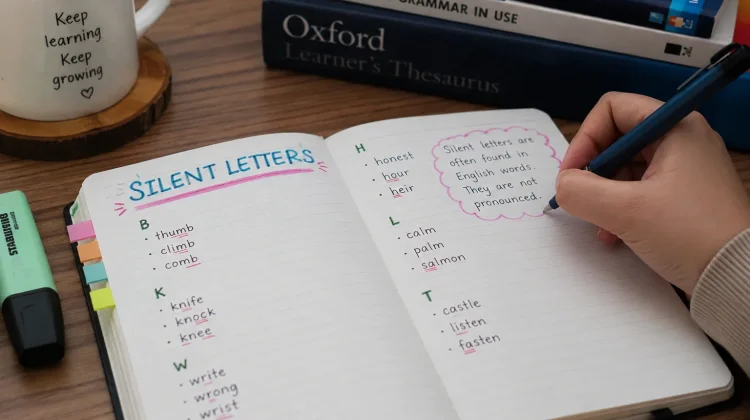 Keep
learning
Keep
growing
GRAMMAR IN USE
Oxford
Learner's Thesaurus
STABILO
SILENT LETTERS
B
· thumb
· climb
· comb
K
· knife
· knock
· knee
W
· write
· wrong
· wrist
H
· honest
· hour
· heir
L
· calm
· palm
· salmon
T
· castle
· listen
· fasten
Silent letters are
often found in
English words.
They are not
pronounced.